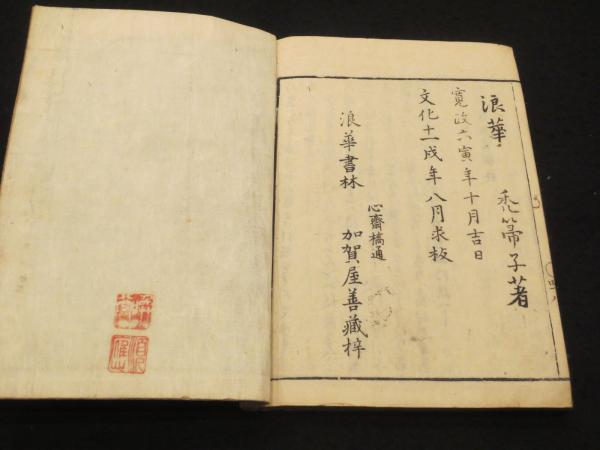 浪華 禿箒子著
寛政六寅年十月吉日
文化十一戌年八月求板
心齋橋通
浪華書林 加賀屋善藏梓